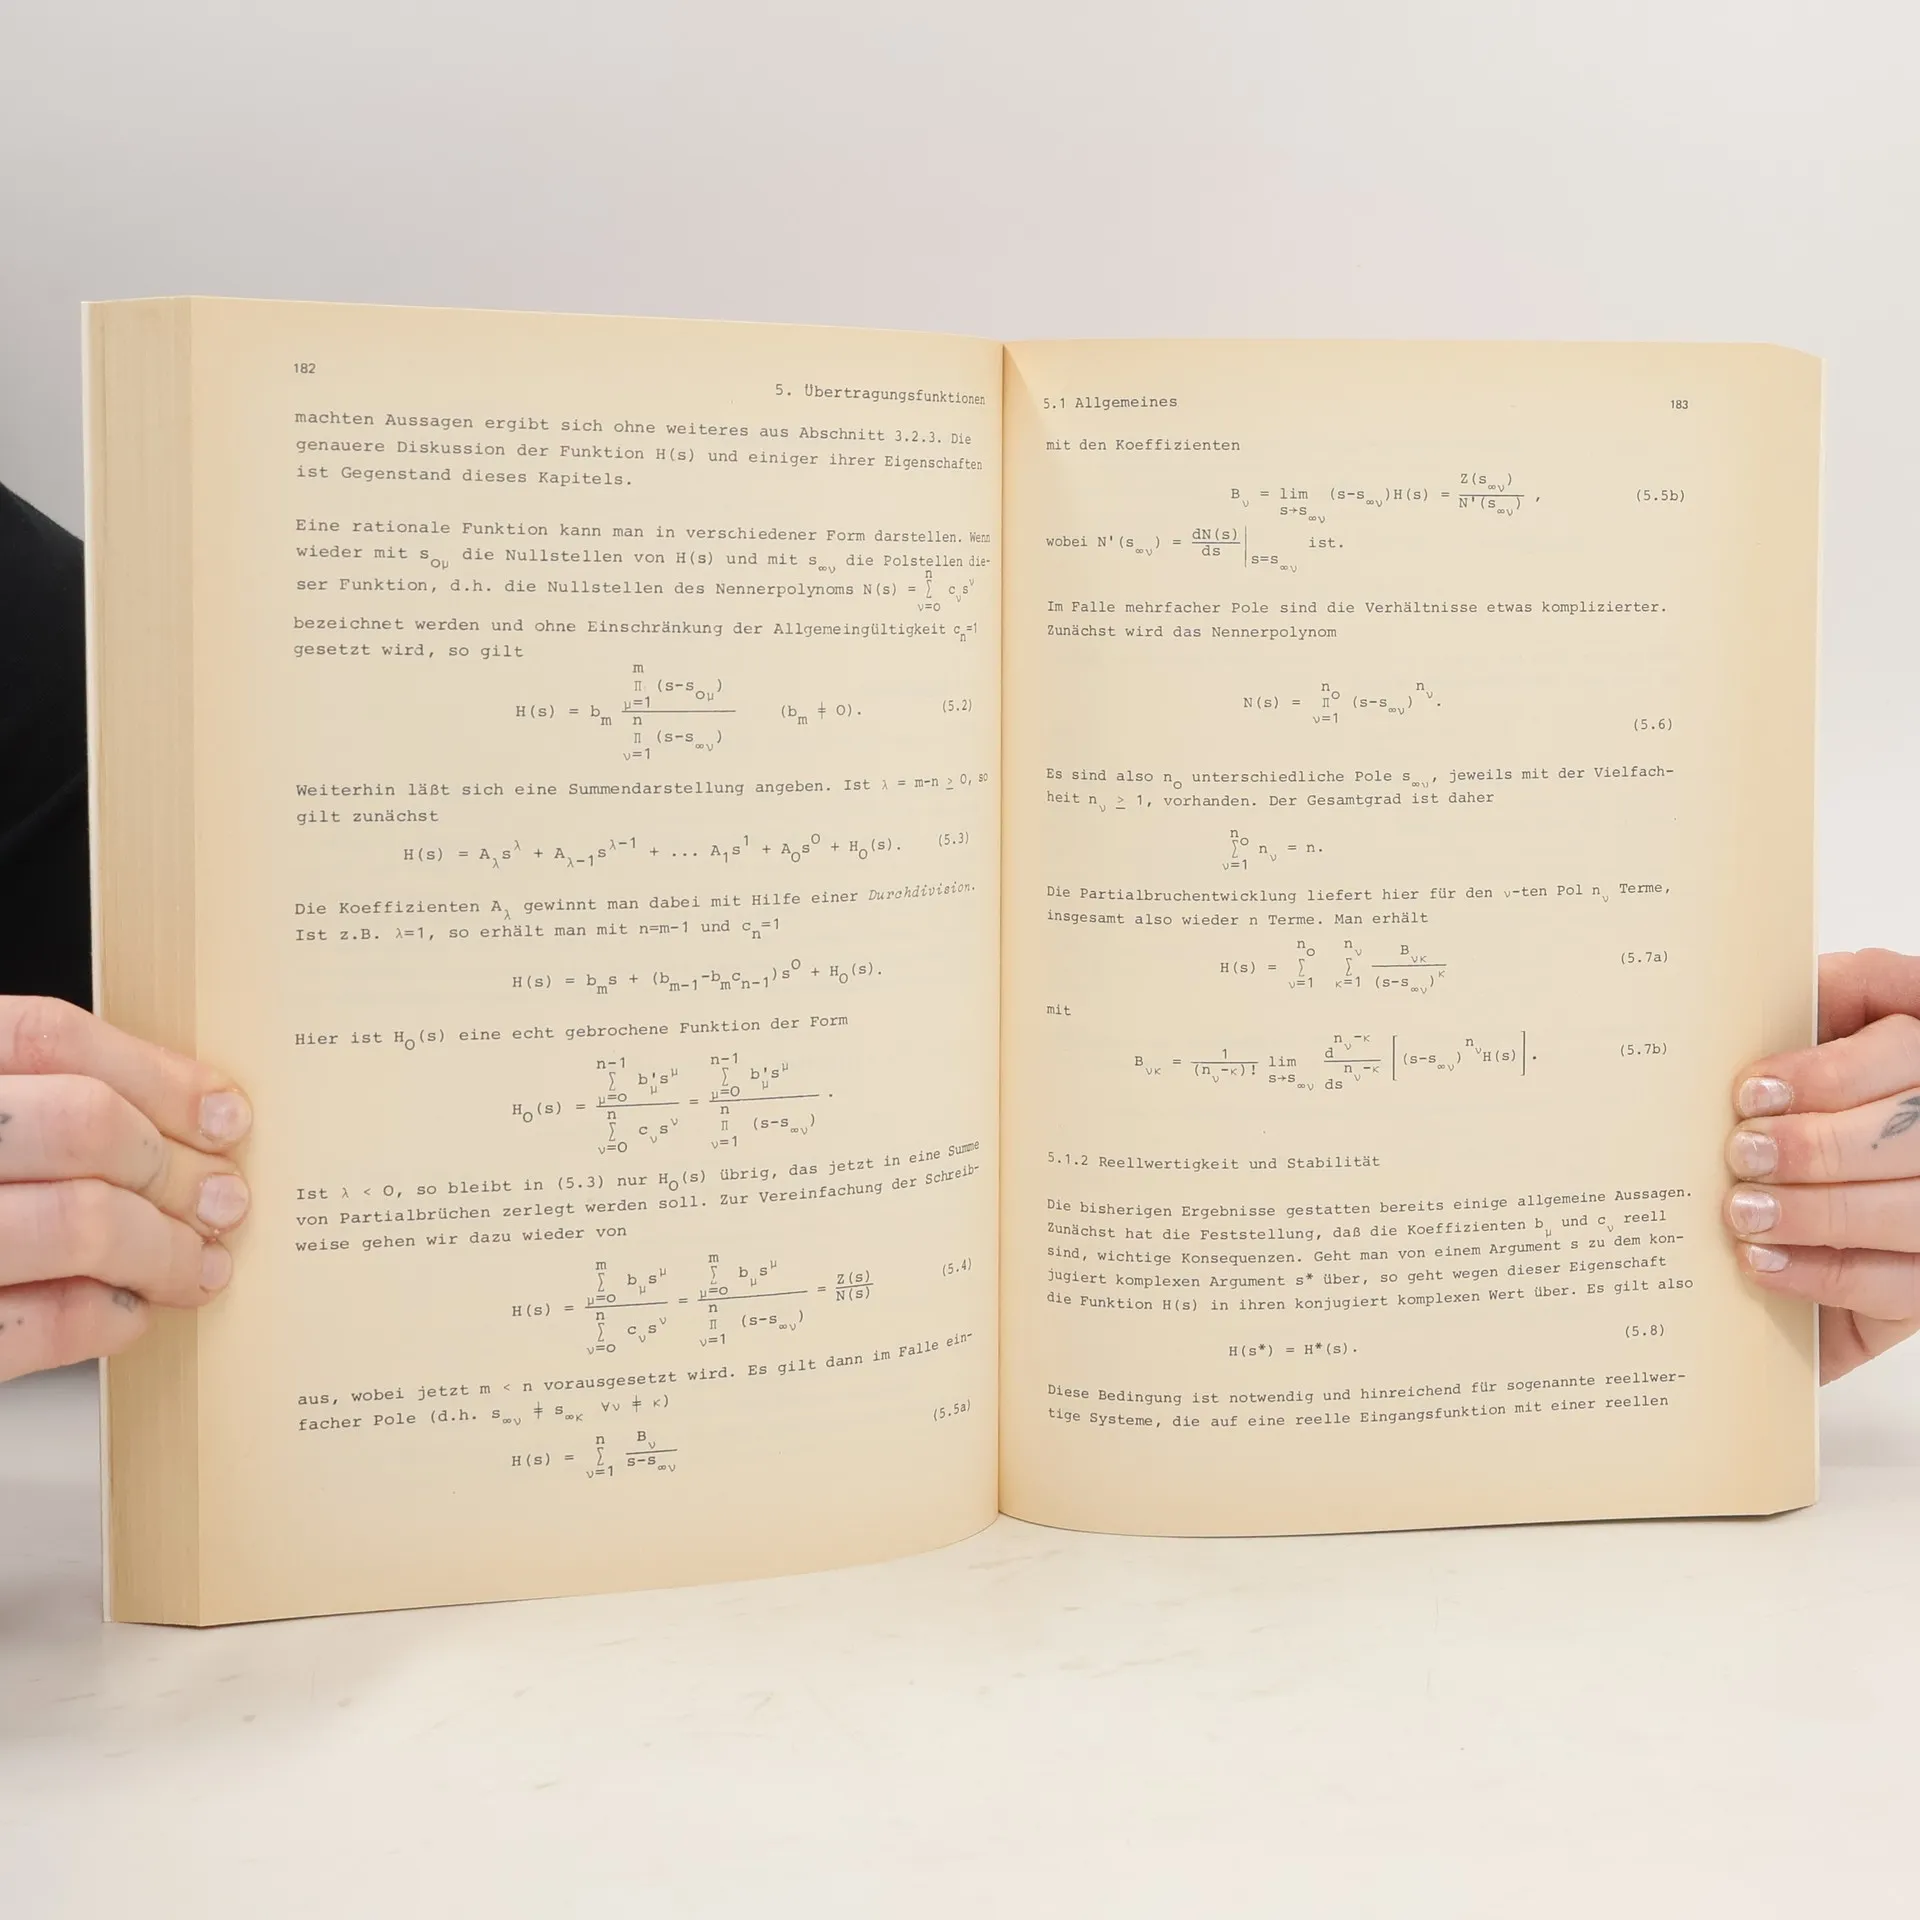 182
5. Übertragungsfunktionen
machten Aussagen ergibt sich ohne weiteres aus Abschnitt 3.2.3. Die
genauere Diskussion der Funktion H(s) und einiger ihrer Eigenschaften
ist Gegenstand dieses Kapitels.
Eine rationale Funktion kann man in verschiedener Form darstellen. Wenn
wieder mit s_{oμ} die Nullstellen von H(s) und mit s_{∞ν} die Polstellen die-
ser Funktion, d.h. die Nullstellen des Nennerpolynoms N(s) = \sum_{ν=0}^{n} c_ν s^ν
bezeichnet werden und ohne Einschränkung der Allgemeingültigkeit c_n=1
gesetzt wird, so gilt
H(s) = b_m \frac{\prod_{μ=1}^{m} (s-s_{oμ})}{\prod_{ν=1}^{n} (s-s_{∞ν})} (b_m ≠ 0). (5.2)
Weiterhin läßt sich eine Summendarstellung angeben. Ist λ = m-n ≥ 0, so
gilt zunächst
H(s) = A_λ s^λ + A_{λ-1} s^{λ-1} + ... A_1 s^1 + A_0 s^0 + H_0(s). (5.3)
Die Koeffizienten A_λ gewinnt man dabei mit Hilfe einer Durchdivision.
Ist z.B. λ=1, so erhält man mit n=m-1 und c_n=1
H(s) = b_m s + (b_{m-1}-b_m c_{n-1}) s^0 + H_0(s).
Hier ist H_0(s) eine echt gebrochene Funktion der Form
H_0(s) = \frac{\sum_{μ=0}^{n-1} b'_μ s^μ}{\sum_{ν=0}^{n} c_ν s^ν} = \frac{\sum_{μ=0}^{n-1} b'_μ s^μ}{\prod_{ν=1}^{n} (s-s_{∞ν})} .
Ist λ < 0, so bleibt in (5.3) nur H_0(s) übrig, das jetzt in eine Summe
von Partialbrüchen zerlegt werden soll. Zur Vereinfachung der Schreib-
weise gehen wir dazu wieder von
H(s) = \frac{\sum_{μ=0}^{m} b_μ s^μ}{\sum_{ν=0}^{n} c_ν s^ν} = \frac{\sum_{μ=0}^{m} b_μ s^μ}{\prod_{ν=1}^{n} (s-s_{∞ν})} = \frac{Z(s)}{N(s)} (5.4)
aus, wobei jetzt m < n vorausgesetzt wird. Es gilt dann im Falle ein-
facher Pole (d.h. s_{∞ν} ≠ s_{∞κ} ∀ν ≠ κ)
H(s) = \sum_{ν=1}^{n} \frac{B_ν}{s-s_{∞ν}} (5.5a)
5.1 Allgemeines 183
mit den Koeffizienten
B_ν = \lim_{s→s_{∞ν}} (s-s_{∞ν})H(s) = \frac{Z(s_{∞ν})}{N'(s_{∞ν})} , (5.5b)
wobei N'(s_{∞ν}) = \frac{dN(s)}{ds} |_{s=s_{∞ν}} ist.
Im Falle mehrfacher Pole sind die Verhältnisse etwas komplizierter.
Zunächst wird das Nennerpolynom
N(s) = \prod_{ν=1}^{n_0} (s-s_{∞ν})^{n_ν}.
(5.6)
Es sind also n_0 unterschiedliche Pole s_{∞ν}, jeweils mit der Vielfach-
heit n_ν ≥ 1, vorhanden. Der Gesamtgrad ist daher
\sum_{ν=1}^{n_0} n_ν = n.
Die Partialbruchentwicklung liefert hier für den ν-ten Pol n_ν Terme,
insgesamt also wieder n Terme. Man erhält
H(s) = \sum_{ν=1}^{n_0} \sum_{κ=1}^{n_ν} \frac{B_{νκ}}{(s-s_{∞ν})^κ} (5.7a)
mit
B_{νκ} = \frac{1}{(n_ν-κ)!} \lim_{s→s_{∞ν}} \frac{d^{n_ν-κ}}{ds^{n_ν-κ}} [(s-s_{∞ν})^{n_ν} H(s)]. (5.7b)
5.1.2 Reellwertigkeit und Stabilität
Die bisherigen Ergebnisse gestatten bereits einige allgemeine Aussagen.
Zunächst hat die Feststellung, daß die Koeffizienten b_μ und c_ν reell
sind, wichtige Konsequenzen. Geht man von einem Argument s zu dem kon-
jugiert komplexen Argument s* über, so geht wegen dieser Eigenschaft
die Funktion H(s) in ihren konjugiert komplexen Wert über. Es gilt also
H(s*) = H*(s). (5.8)
Diese Bedingung ist notwendig und hinreichend für sogenannte reellwer-
tige Systeme, die auf eine reelle Eingangsfunktion mit einer reellen